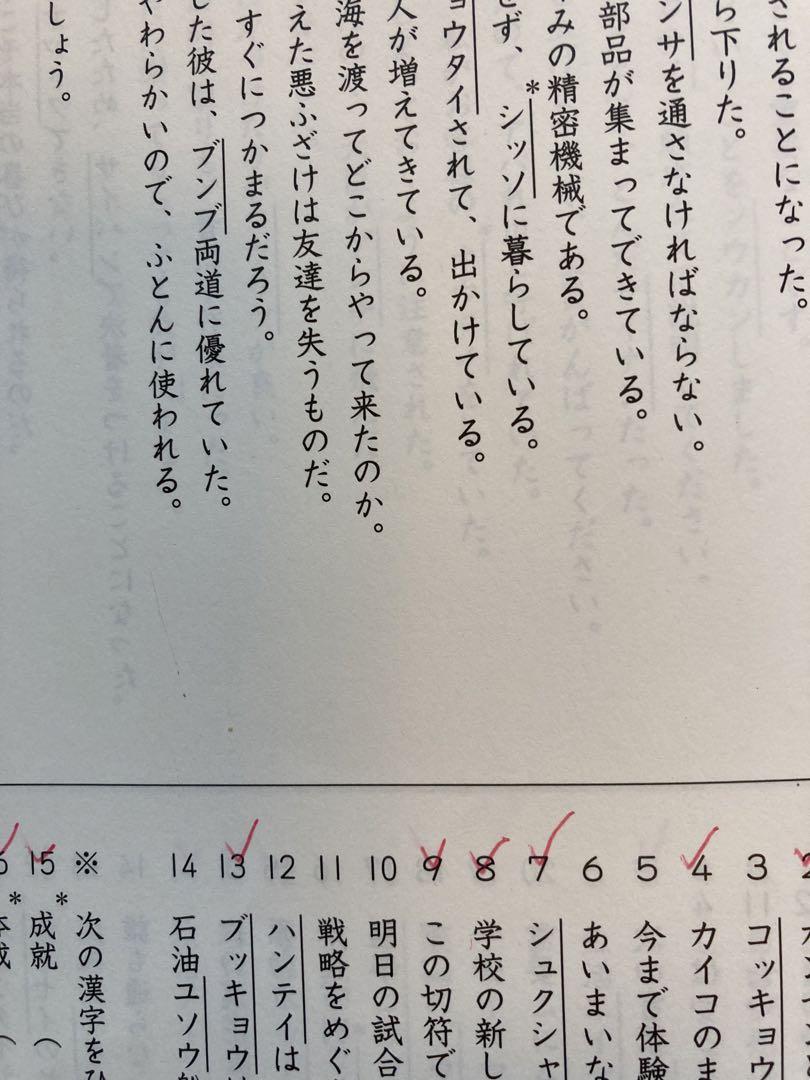 されることになった。
ら下りた。
ンサを通さなければならない。
部品が集まってできている。
みの精密機械である。
せず、*シッソに暮らしている。
ョウタイされて、出かけている。
人が増えてきている。
海を渡ってどこからやって来たのか。
えた悪ふざけは友達を失うものだ。
すぐにつかまるだろう。
した彼は、ブンブ両道に優れていた。
やわらかいので、ふとんに使われる。
しょう。
2
3 コッキョウ
4 カイコのま
5 今まで体験
6 あいまいな
7 シュクシャ
8 学校の新し
9 この切符で
10 明日の試合
11 戦略をめぐ
12 ハンテイは
13 ブッキョウ
14 石油ユソウ
※ 次の漢字をひ
15 *成就（